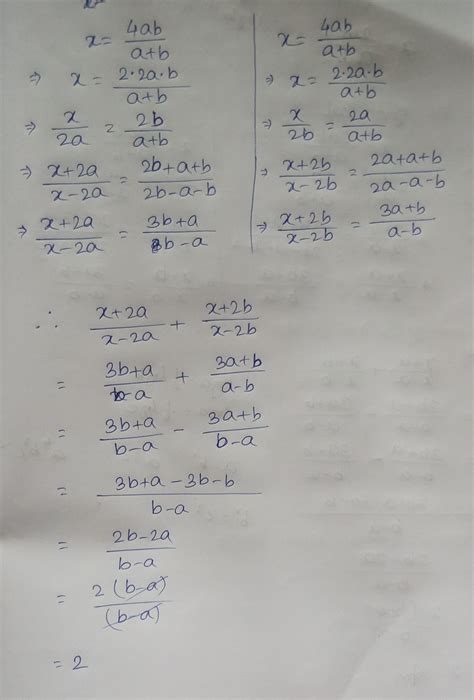 x = 4ab/(a+b)
⇒ x = 2·2a·b/(a+b)
⇒ x/2a = 2b/(a+b)
⇒ (x+2a)/(x-2a) = (2b+a+b)/(2b-a-b)
⇒ (x+2a)/(x-2a) = (3b+a)/(b-a)
x = 4ab/(a+b)
⇒ x = 2·2a·b/(a+b)
⇒ x/2b = 2a/(a+b)
⇒ (x+2b)/(x-2b) = (2a+a+b)/(2a-a-b)
⇒ (x+2b)/(x-2b) = (3a+b)/(a-b)
∴ (x+2a)/(x-2a) + (x+2b)/(x-2b)
= (3b+a)/(b-a) + (3a+b)/(a-b)
= (3b+a)/(b-a) - (3a+b)/(b-a)
= (3b+a-3b-b)/(b-a)
= (2b-2a)/(b-a)
= 2(b-a)/(b-a)
= 2